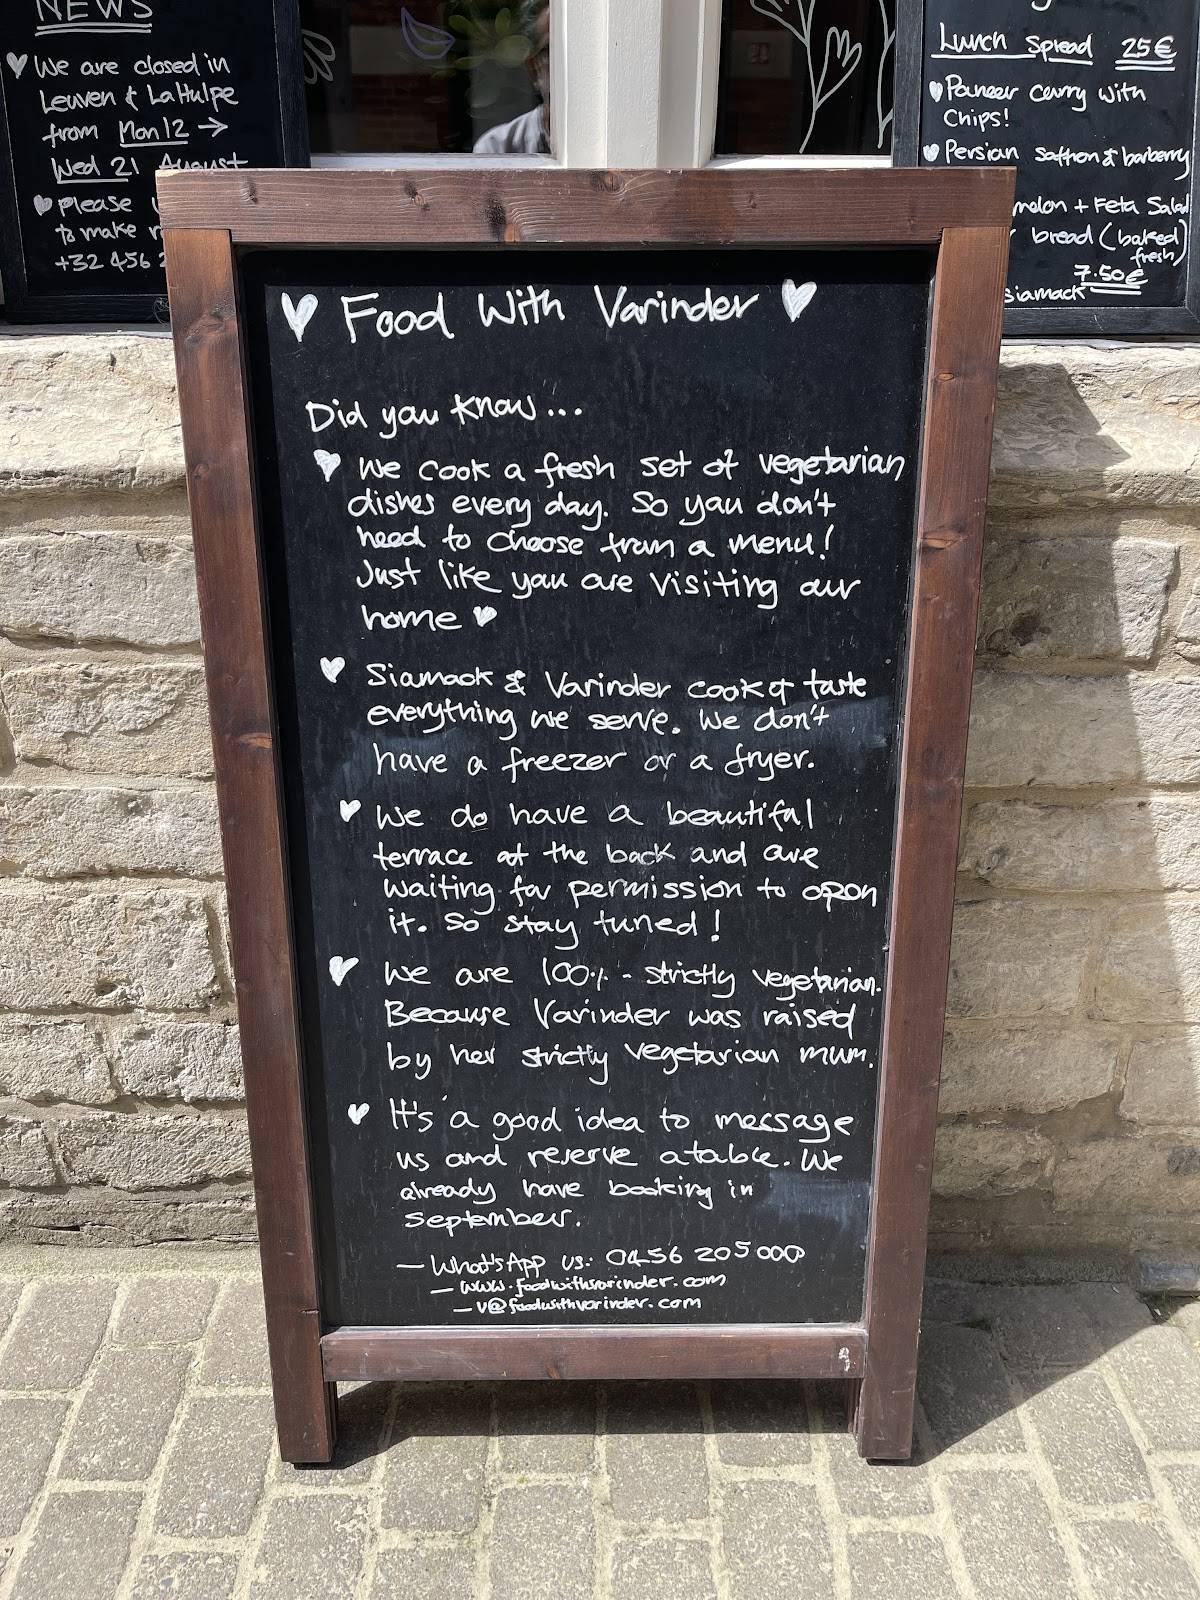 NEWS
We are closed in
Leuven & La Hulpe
from Mon 12 →
Wed 21 August
Please
to make
+32 456 2
Lunch Spread 25€
Paneer curry with
Chips!
Persian saffron & barberry
melon + Feta Salad
bread (baked
fresh)
7.50€
siamack
Food With Varinder
Did you know...
We cook a fresh set of vegetarian
dishes every day. So you don't
need to choose from a menu!
Just like you are visiting our
home
Siamack & Varinder cook & taste
everything we serve. We don't
have a freezer or a fryer.
We do have a beautiful
terrace at the back and are
waiting for permission to open
it. So stay tuned!
We are 100% - strictly vegetarian.
Because Varinder was raised
by her strictly vegetarian mum.
It's a good idea to message
us and reserve a table. We
already have booking in
September.
— What'sApp us: 0456 205 000
— www.foodwithvarinder.com
— v@foodwithvarinder.com